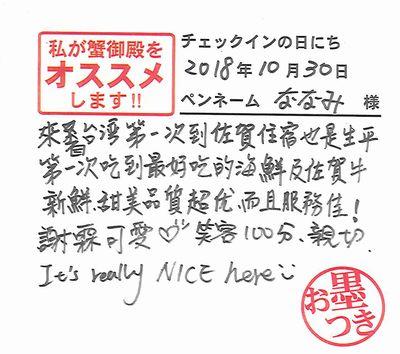 私が蟹御殿を
オススメ
します!!
チェックインの日にち
2018年10月30日
ペンネーム ななみ 様
來番台湾第一次到佐賀住宿也是生平
第一次吃到最好吃的海鮮及佐賀牛
新鮮甜美品質超优而且服務佳!
謝霖可愛♡笑容100分、親切.
It's really NICE here☺
お墨つき